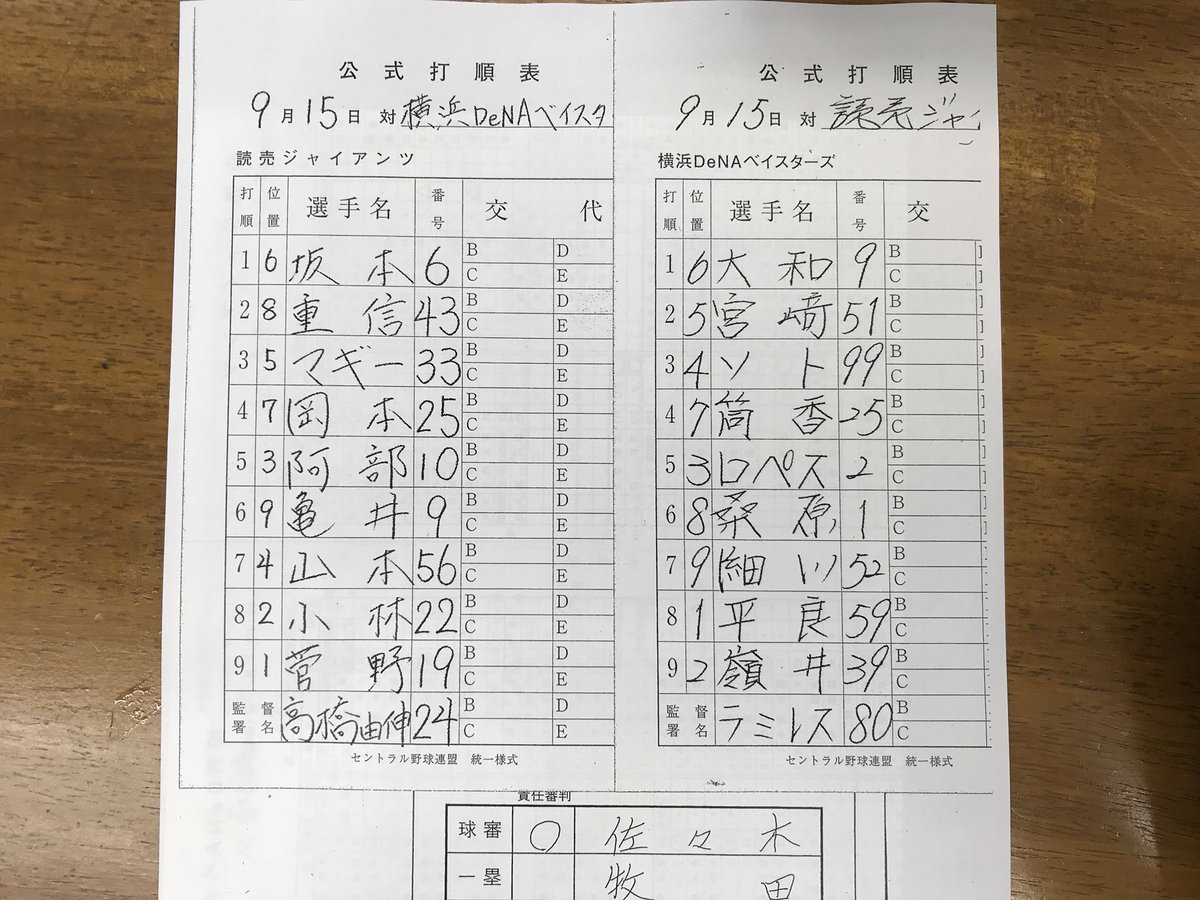 公式打順表
9月15日 対 横浜DeNAベイスタ
読売ジャイアンツ
打順 位置 選手名 番号 交代
1 6 坂本 6 B D C E
2 8 重信 43 B D C E
3 5 マギー 33 B D C E
4 7 岡本 25 B D C E
5 3 阿部 10 B D C E
6 9 亀井 9 B D C E
7 4 山本 56 B D C E
8 2 小林 22 B D C E
9 1 菅野 19 B D C E
監督署名 高橋由伸 24 B D C E
セントラル野球連盟 統一様式
公式打順表
9月15日 対 読売ジャイ
横浜DeNAベイスターズ
打順 位置 選手名 番号 交
1 6 大和 9 B C
2 5 宮﨑 51 B C
3 4 ソト 99 B C
4 7 筒香 25 B C
5 3 ロペス 2 B C
6 8 桑原 1 B C
7 9 細川 52 B C
8 1 平良 59 B C
9 2 嶺井 39 B C
監督署名 ラミレス 80 B C
セントラル野球連盟 統一様式
責任審判
球審 ○ 佐々木
一塁 牧田